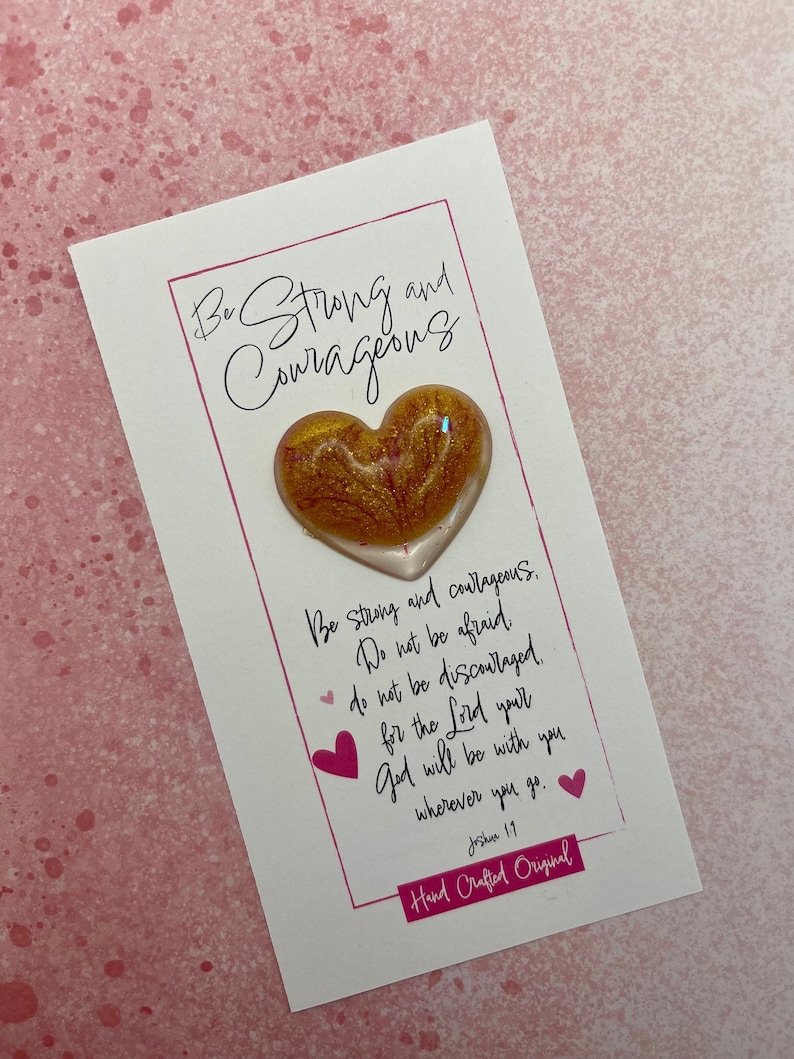 Be Strong and
Courageous
Be strong and courageous,
Do not be afraid;
do not be discouraged,
for the Lord your
God will be with you
wherever you go.
Joshua 1:9
Hand Crafted Original